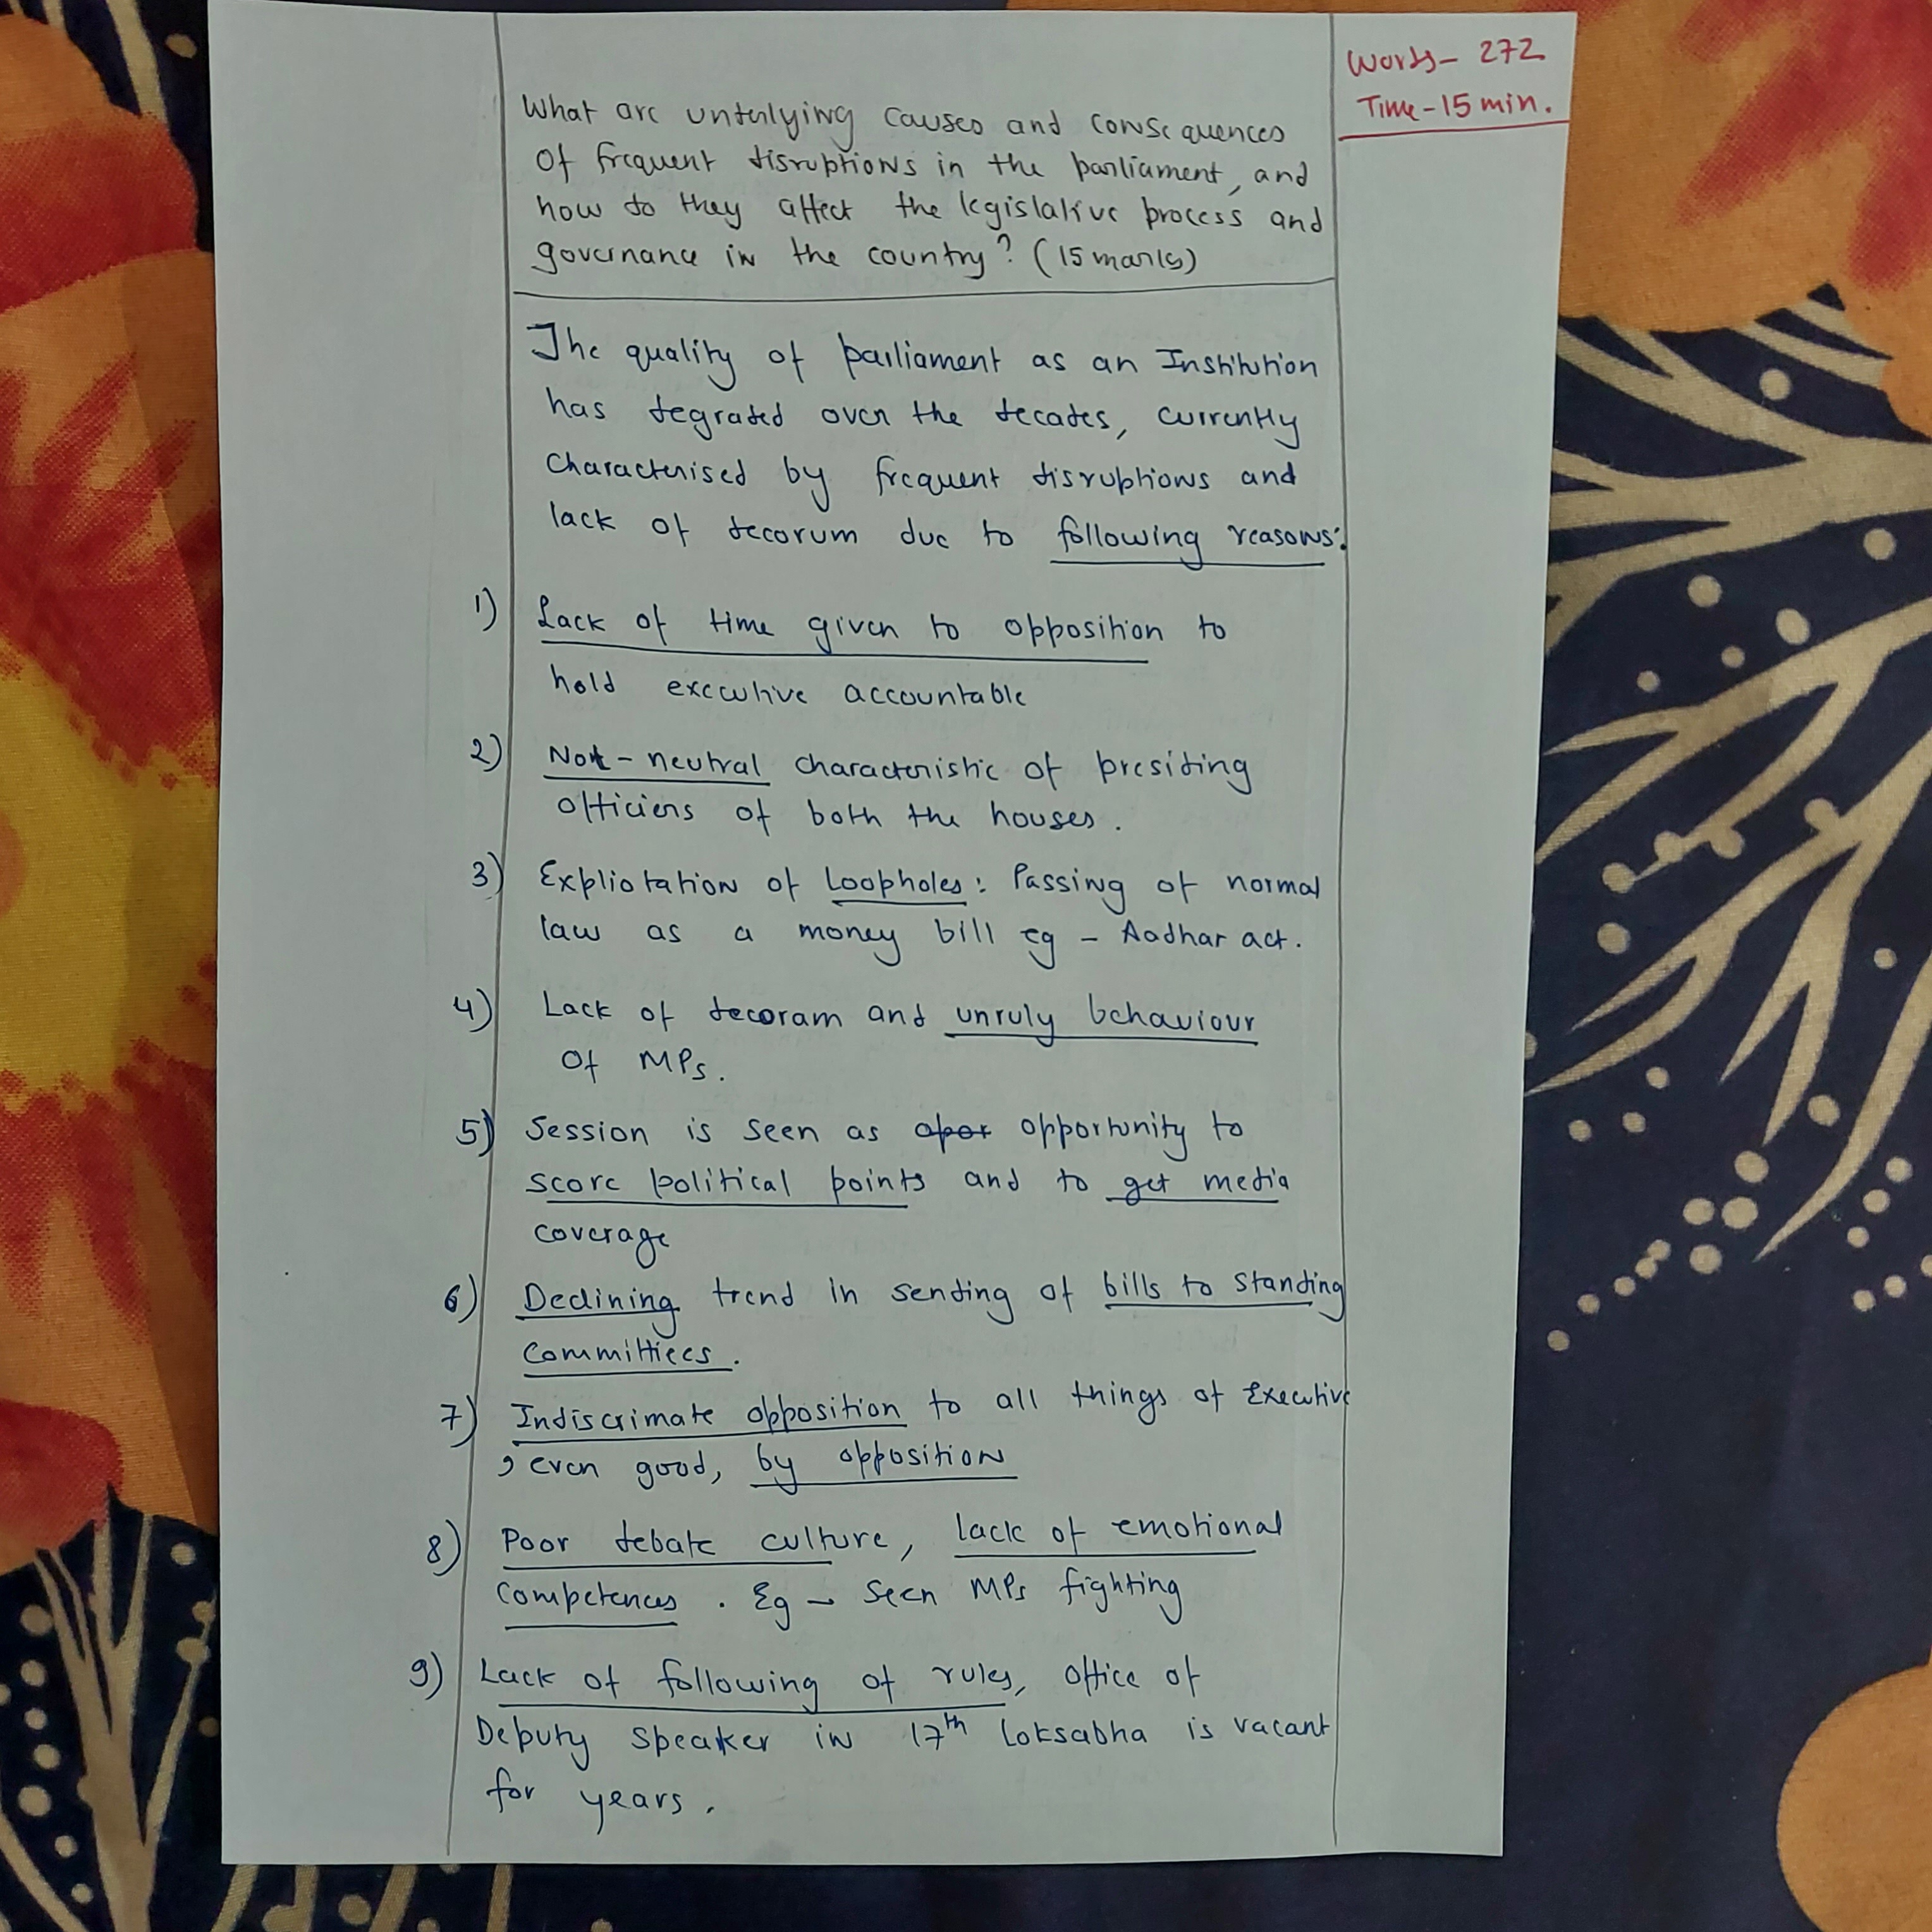 Words- 272
Time-15 min.
What are underlying causes and consequences
Of frequent disruptions in the parliament, and
how do they affect the legislative process and
governance in the country? (15 marks)
The quality of parliament as an Institution
has degraded over the decades, currently
characterised by frequent disruptions and
lack of decorum due to following reasons:
1) Lack of time given to opposition to
hold executive accountable
2) Not-neutral characteristic of presiding
officiers of both the houses.
3) Expliotation of Loopholes: Passing of normal
law as a money bill eg - Aadhar act.
4) Lack of decoram and unruly behaviour
Of MPs.
5) Session is seen as opportunity to
score political points and to get media
coverage
6) Declining trend in sending of bills to standing
committiees.
7) Indiscrimate opposition to all things of Executive
, even good, by opposition
8) Poor debate culture, lack of emotional
competences. Eg - Seen MPs fighting
9) Lack of following of rules, office of
Deputy speaker in 17th Loksabha is vacant
for years.